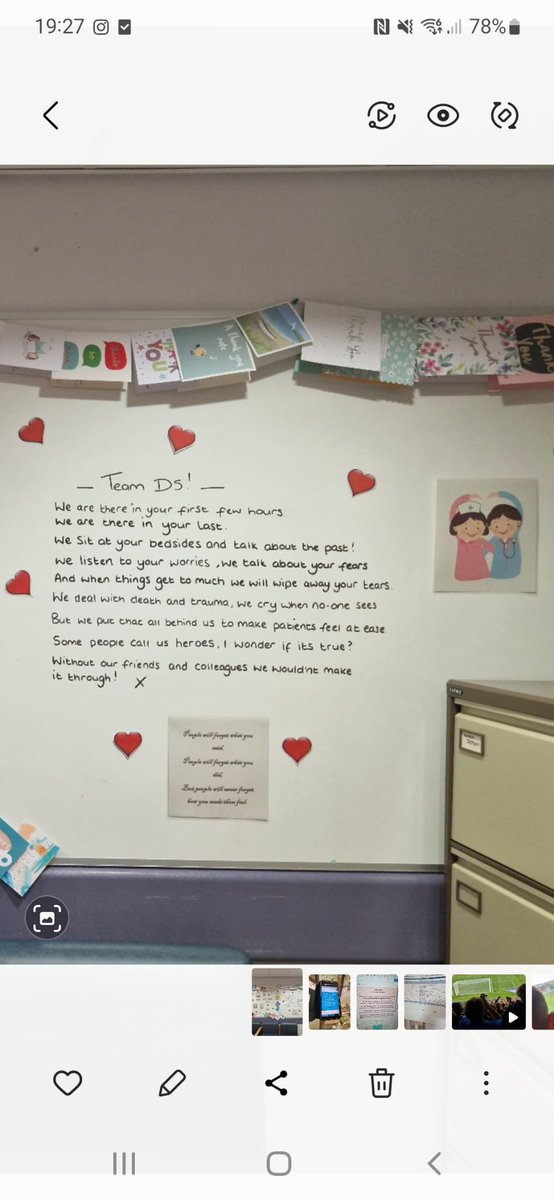 19:27
78%
Thank you
A thank you note
THANK YOU
Thank You
Thank you
Thank You
— Team D5! —
We are there in your first few hours
We are there in your last.
We sit at your bedsides and talk about the past!
We listen to your worries, we talk about your fears
And when things get to much we will wipe away your tears.
We deal with death and trauma, we cry when no-one sees
But we put that all behind us to make patients feel at ease
Some people call us heroes, I wonder if its true?
Without our friends and colleagues we wouldn't make
it through! X
People will forget what you
said.
People will forget what you
did,
But people will never forget
how you made them feel.